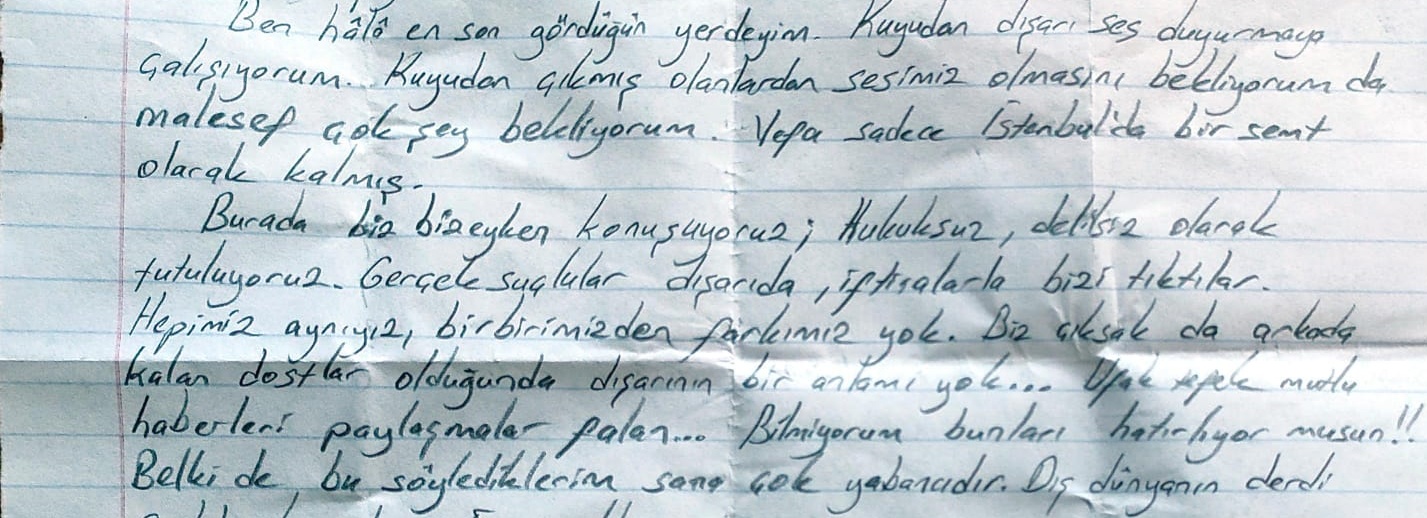 Ben hâlâ en son gördüğün yerdeyim. Kuyudan dışarı ses duyurmaya
çalışıyorum. Kuyudan çıkmış olanlardan sesimiz olmasını bekliyorum da
malesef çok şey bekliyorum. Vefa sadece İstanbul'da bir semt
olarak kalmış.
Burada biz bizeyken konuşuyoruz; Hukuksuz, delilsiz olarak
tutuluyoruz. Gerçek suçlular dışarıda, iftiralarla bizi tıktılar.
Hepimiz aynıyız, birbirimizden farkımız yok. Biz çıksak da arkada
kalan dostlar olduğunda dışarının bir anlamı yok... Ufak tefek mutlu
haberleri paylaşmalar falan... Bilmiyorum bunları hatırlıyor musun!!
Belki de bu söylediklerim sana çok yabancıdır. Dış dünyanın derdi